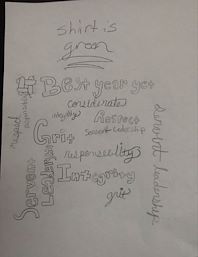 shirt is
green
# Best year yet
considerate
integrity Respect
servant leadership
Grit
responsibility
Integrity
grit
Servant
Leadership
respect
servant leadership